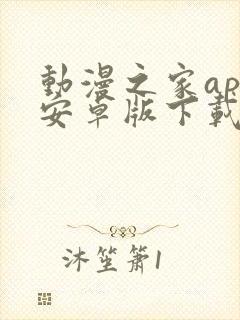 動漫之家ap
安卓版下載
沐笙簫1